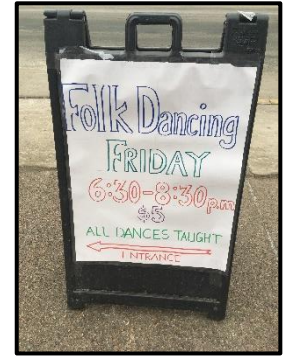 Folk Dancing
FRIDAY
6:30-8:30pm
$5
ALL DANCES TAUGHT
ENTRANCE